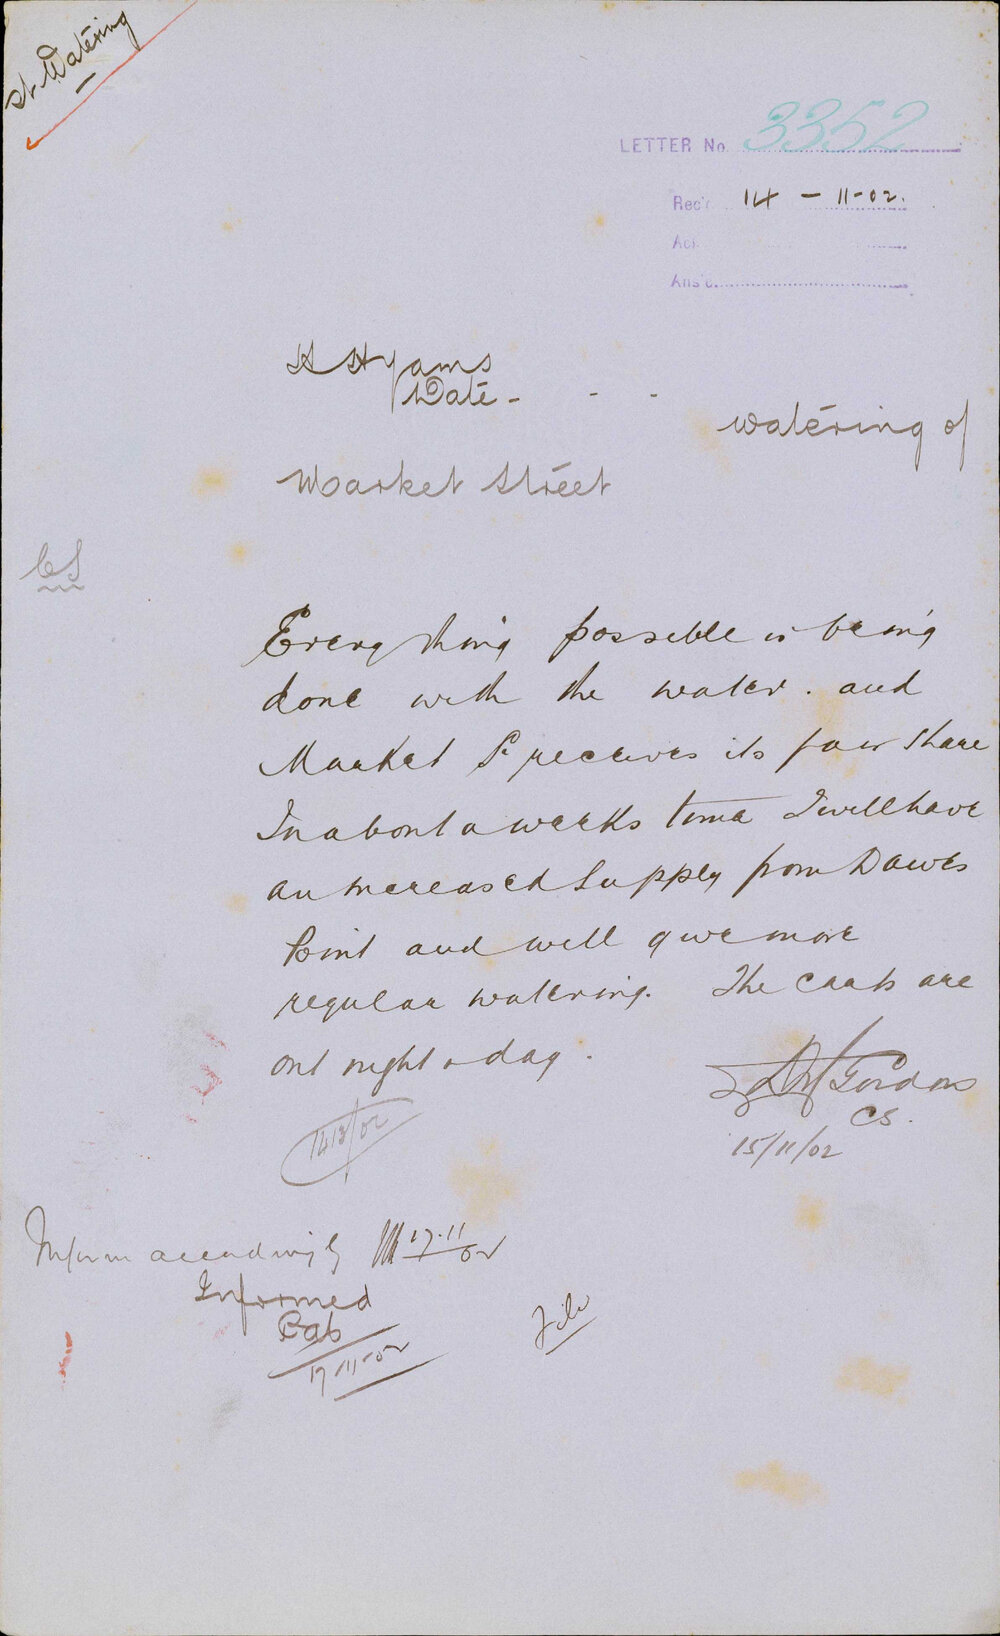 St Watering
LETTER No 3352
Rec'd 14 - 11-02.
Act
Ans'd.
H Hyams
Date - - -
watering of
Market Street
CS
Everything possible is being
done with the water. and
Market St receives its fair share
In about a weeks time I will have
an increased supply from Dawes
Point and will give more
regular watering. The carts are
out night & day.
Gordon
CS.
15/11/02
Inform accordingly 17.11/02
Informed
17-11-02
File